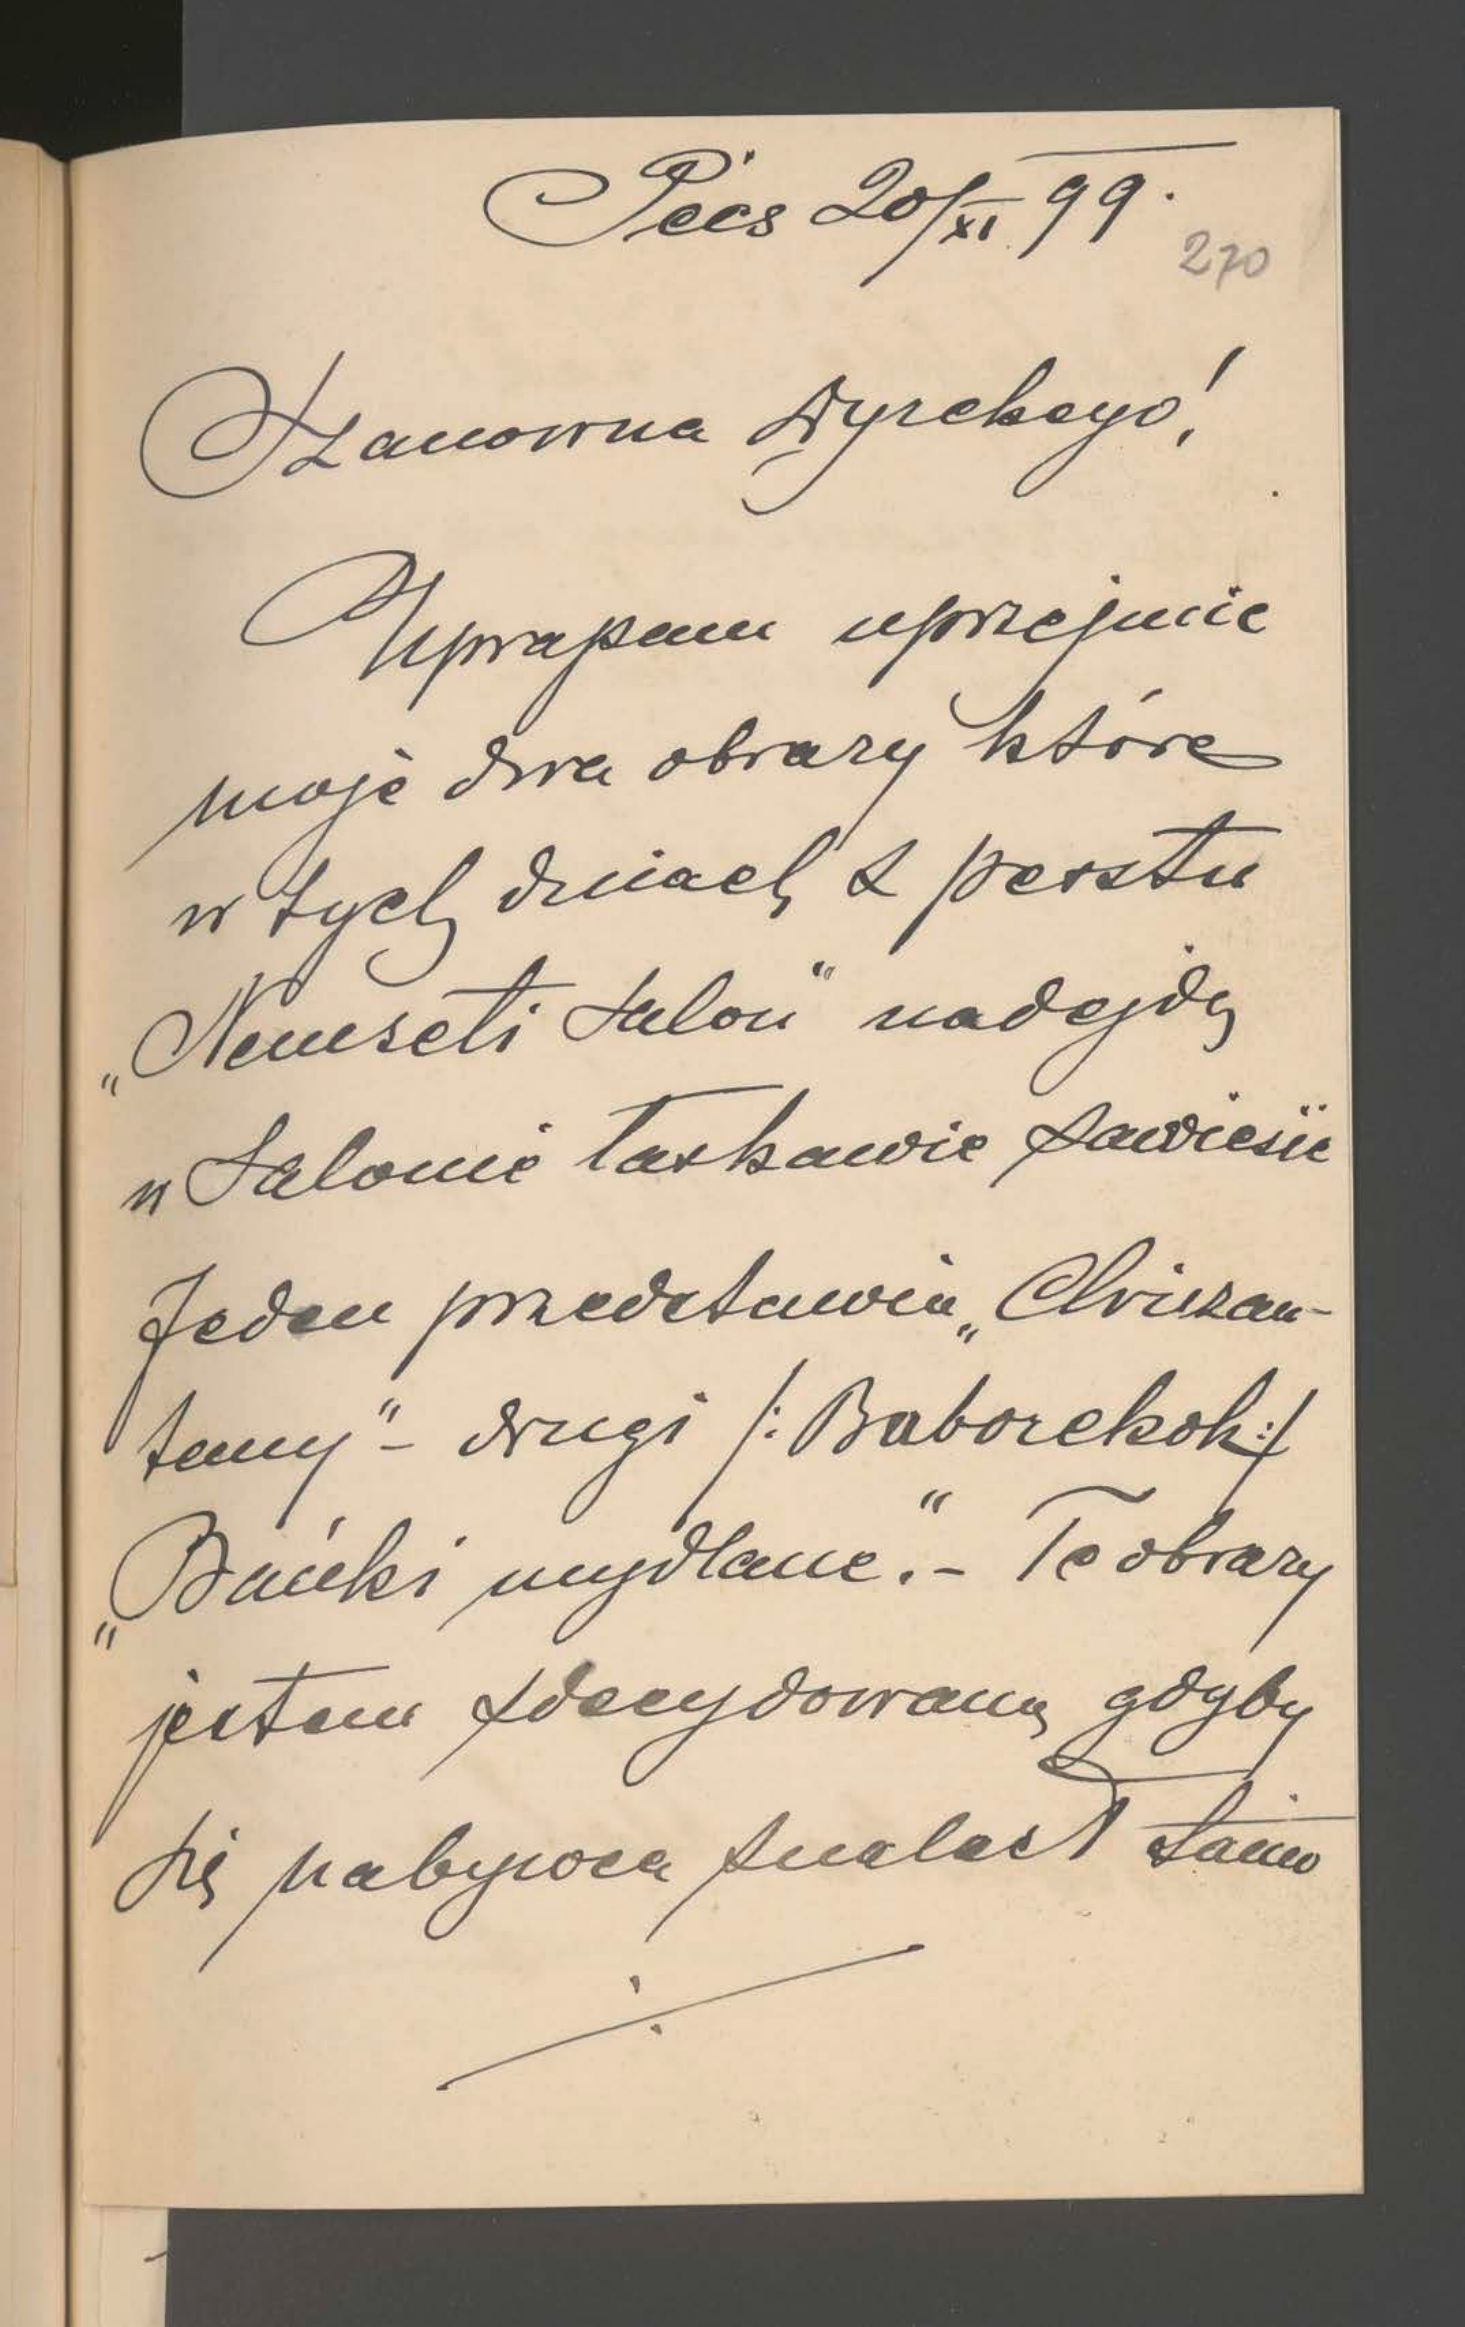 Pécs 20/XI 99.
270
Szanowna Dyrekcyo!
Upraszam uprzejmie
moje dwa obrazy które
w tych dniach z pesztu
„Nemseti Salon" nadejdą
w Salonie łaskawie zawiesić
Jeden przedstawia „Chrizan-
temy" - drugi /: Buborekok :/
„Bańki mydlane." - Te obrazy
jestem zdecydowaną gdyby
się nabywca znalazł tanio